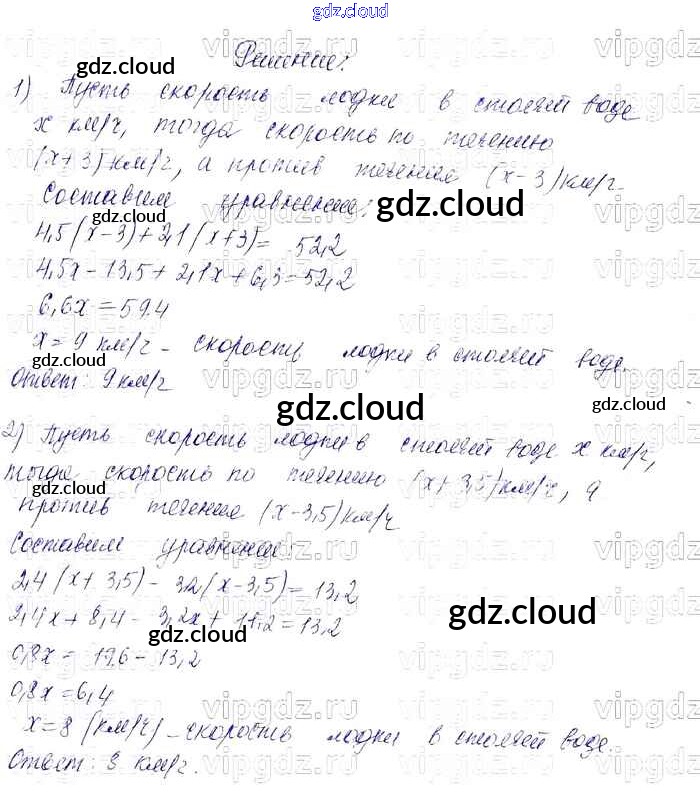 gdz.cloud
Решение:
1) Пусть скорость лодки в стоячей воде
x км/ч, тогда скорость по течению
(x+3) км/ч, а против течения (x-3) км/ч.
Составим уравнение:
4,5(x-3)+2,1(x+3)= 52,2
4,5x-13,5+2,1x+6,3=52,2
6,6x=59.4
x=9 км/ч - скорость лодки в стоячей воде.
Ответ: 9 км/ч
2) Пусть скорость лодки в стоячей воде x км/ч,
тогда скорость по течению (x+3,5) км/ч, а
против течения (x-3,5) км/ч
Составим уравнение:
2,4(x+3,5)-3,2(x-3,5)=13,2
2,4x+8,4-3,2x+11,2=13,2
0,8x=19,6-13,2
0,8x=6,4
x=8 (км/ч) - скорость лодки в стоячей воде.
Ответ: 8 км/ч.
gdz.cloud
gdz.cloud
gdz.cloud
gdz.cloud
gdz.cloud
gdz.cloud
gdz.cloud
gdz.cloud
gdz.cloud
vipgdz.ru